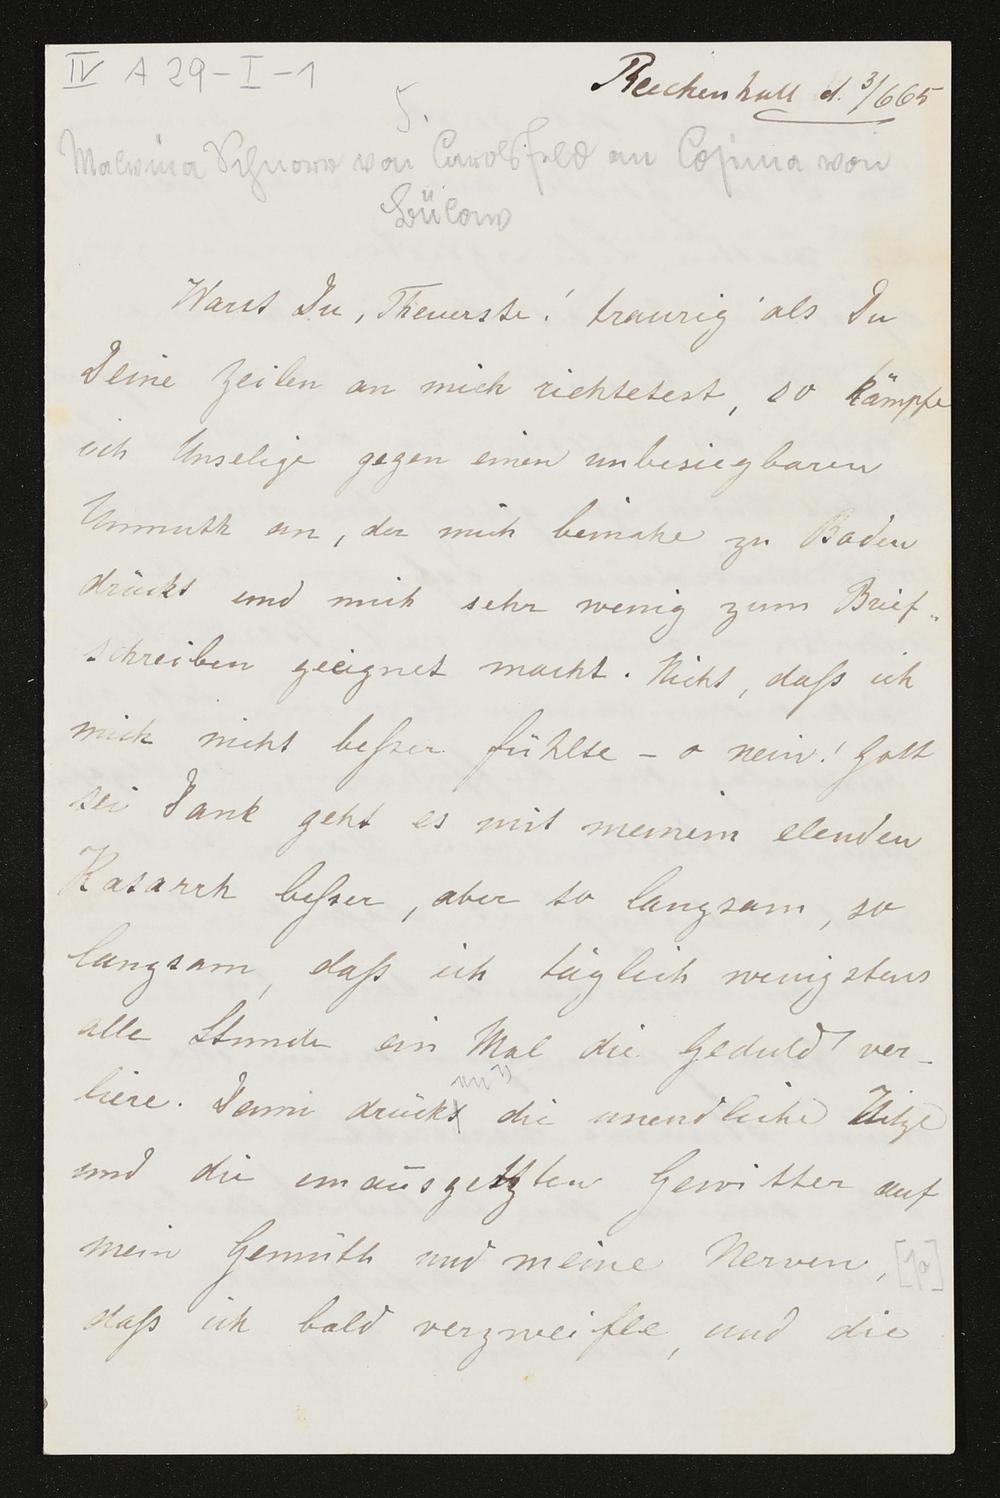 IV A 29-I-1
Reichenhall d. 3/665
5.
Malvina Schnorr von Carolsfeld an Cosima von
Bülow
Warst Du, Theuerste! traurig als Du
Deine Zeilen an mich richtetest, so kämpfe
ich Unselige gegen einen unbesiegbaren
Unmuth an, der mich beinahe zu Boden
drückt und mich sehr wenig zum Brief-
schreiben geeignet macht. Nicht, daß ich
mich nicht beßer fühlte - o nein! Gott
sei Dank geht es mit meinem elenden
Katarrh beßer, aber so langsam, so
langsam, daß ich täglich wenigstens
alle Stunde ein Mal die Geduld ver-
liere. Dann drückt die unendliche Hitze
und die unausgesetzten Gewitter auf
mein Gemüth und meine Nerven, [so]
daß ich bald verzweifle, und die